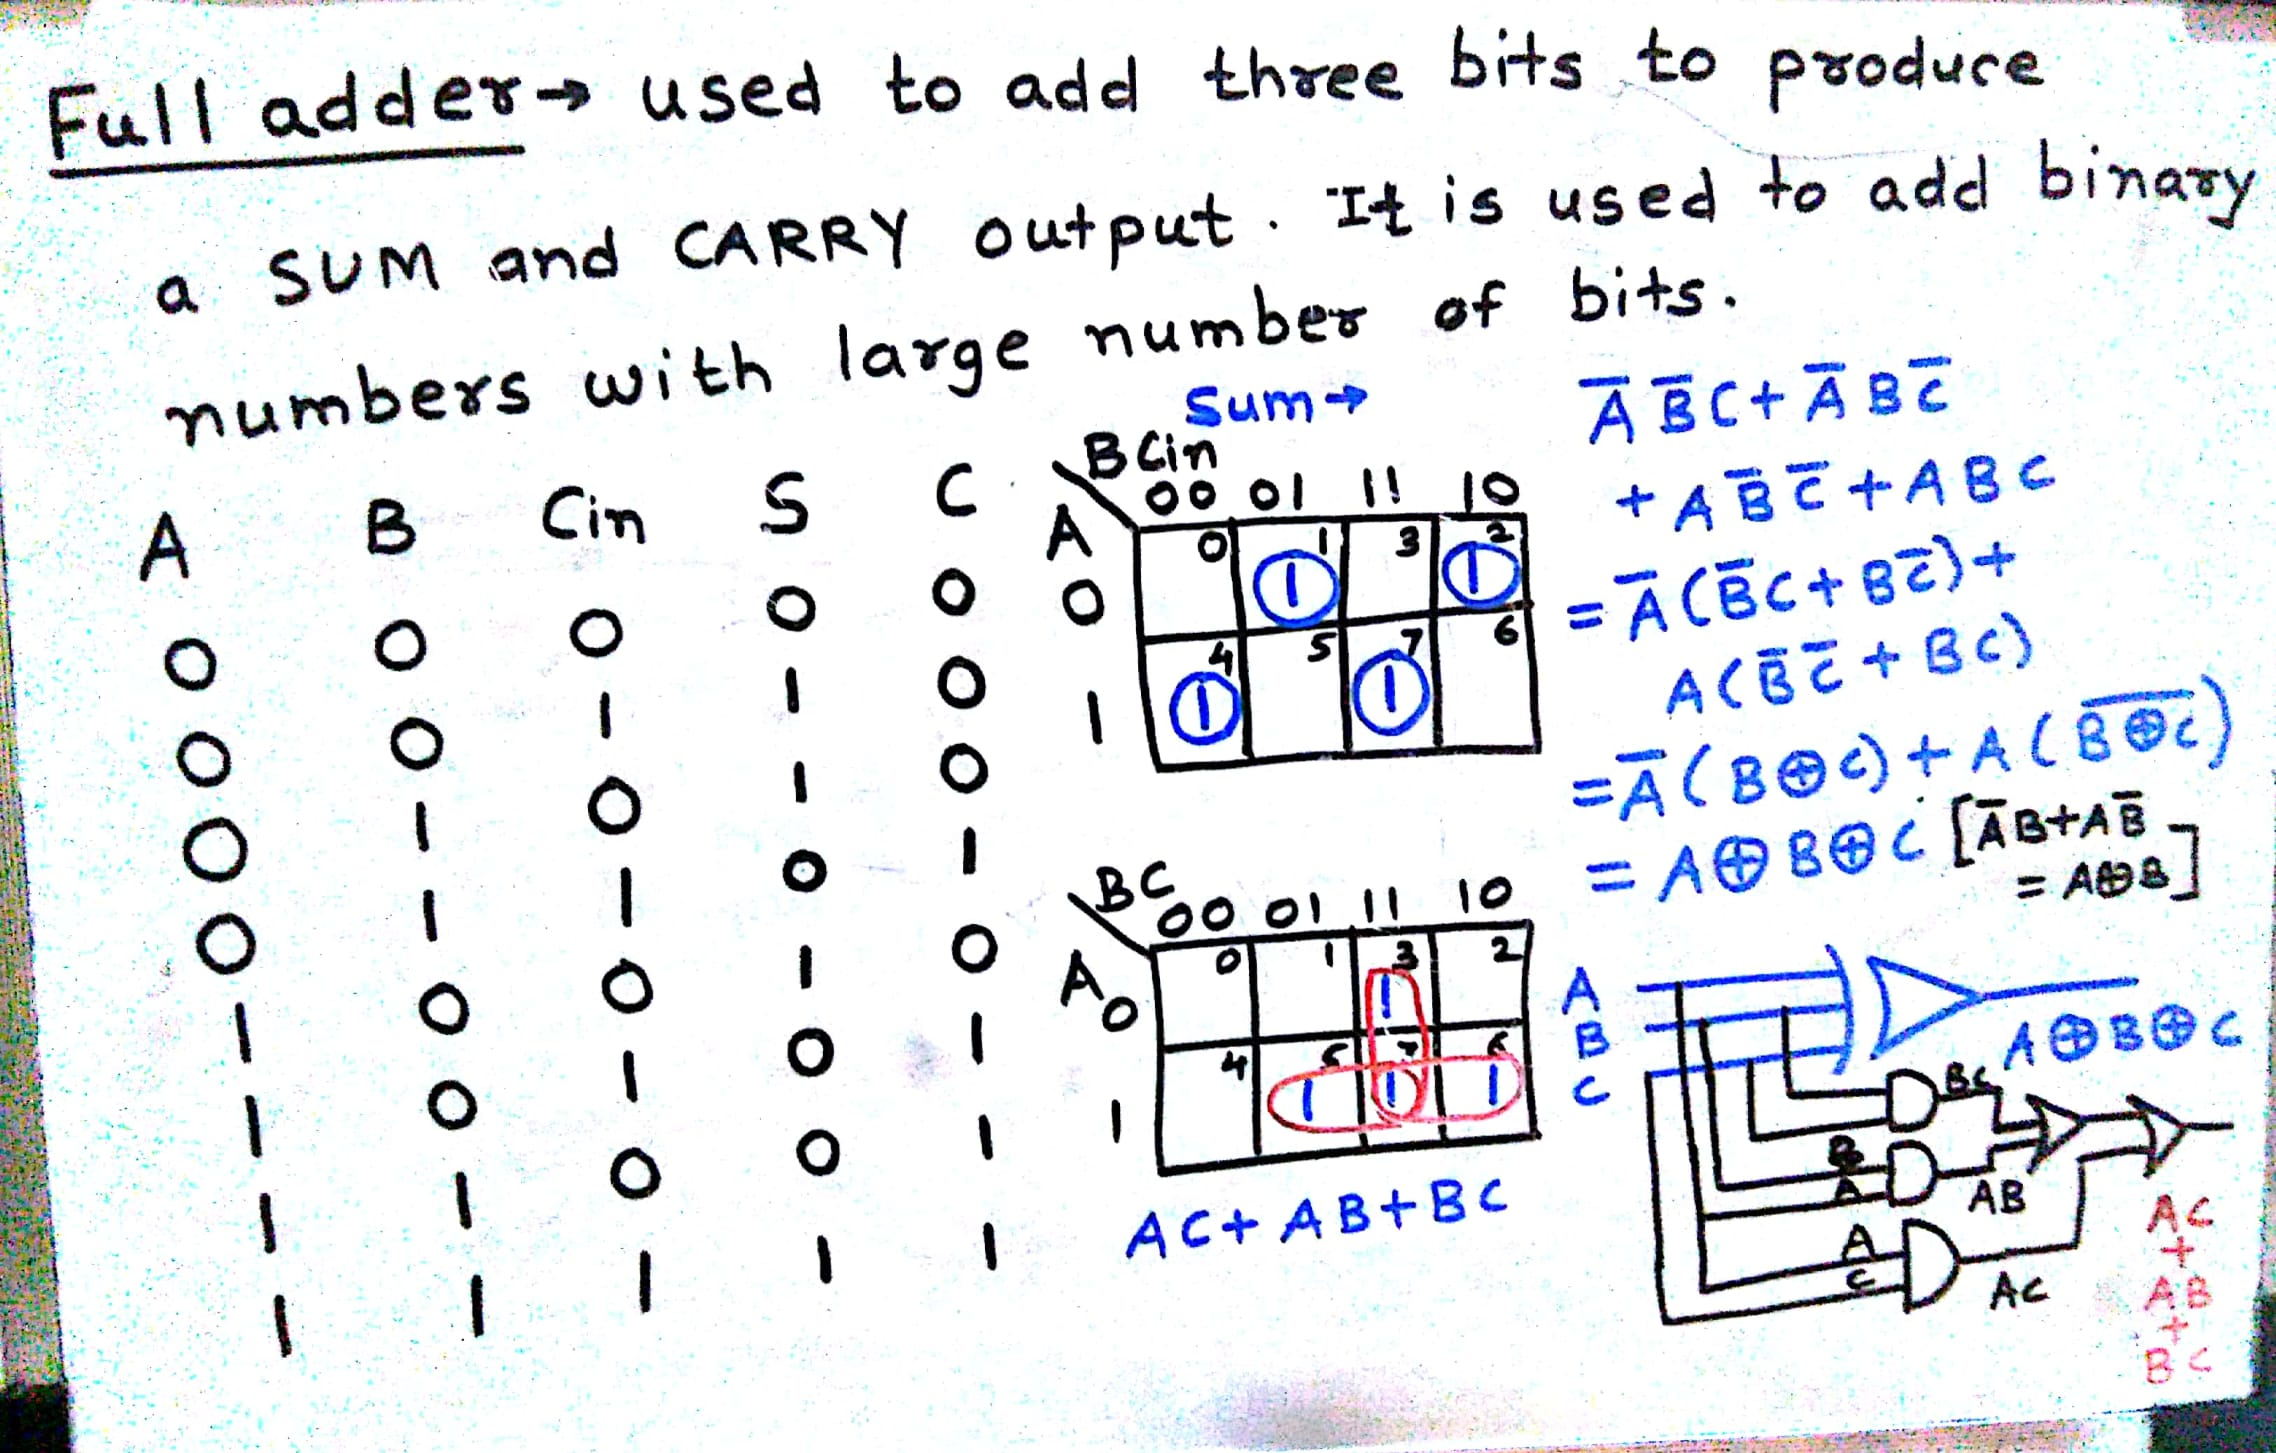 Full adder→ used to add three bits to produce
a SUM and CARRY output. It is used to add binary
numbers with large number of bits.
A B Cin S C
0 0 0 0 0
0 0 1 1 0
0 1 0 1 0
0 1 1 0 1
1 0 0 1 0
1 0 1 0 1
1 1 0 0 1
1 1 1 1 1
Sum→
B Cin
00 01 11 10
A
0 1 3 2
0 1 1
4 5 7 6
1 1 1
A̅ B̅ C + A̅ B C̅
+ A B̅ C̅ + A B C
= A̅ (B̅ C + B C̅) +
A (B̅ C̅ + B C)
= A̅ (B ⊕ C) + A (B̅ ⊕̅ C̅)
= A ⊕ B ⊕ C [A̅ B + A B̅
= A ⊕ B]
BC
00 01 11 10
A
0 1 3 2
0 1
4 5 7 6
1 1 1 1
AC + AB + BC
A
B
C
A ⊕ B ⊕ C
BC
B
A
AB
A
C
AC
AC
+
AB
+
BC